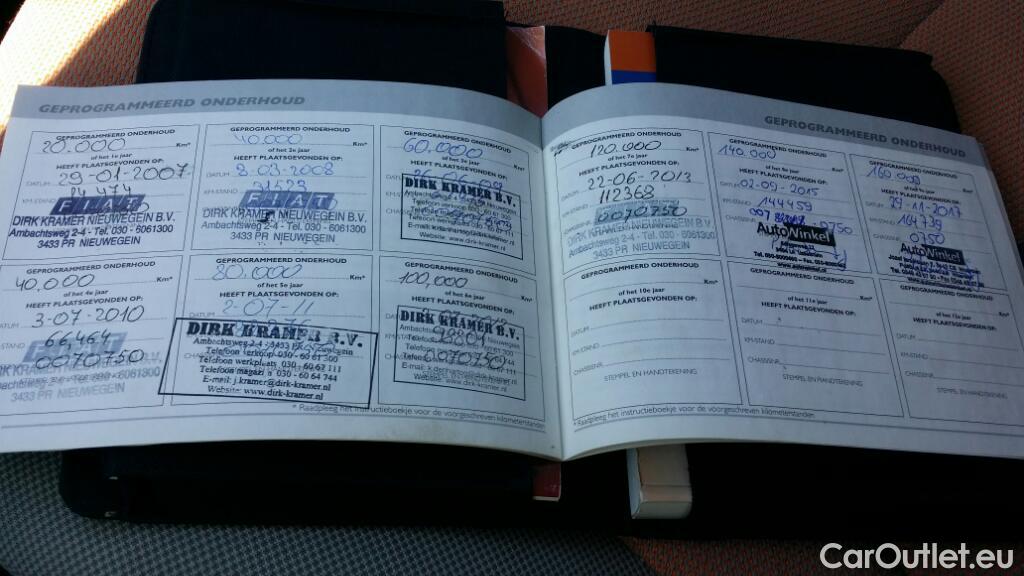 GEPROGRAMMEERD ONDERHOUD
GEPROGRAMMEERD ONDERHOUD
20.000 Km*
of het 1e jaar
HEEFT PLAATSGEVONDEN OP:
DATUM 29-01-2007
24 474
FIAT
DIRK KRAMER NIEUWEGEIN B.V.
Ambachtsweg 2-4 - Tel. 030 - 6061300
3433 PR NIEUWEGEIN
GEPROGRAMMEERD ONDERHOUD
40.000 Km*
of het 2e jaar
HEEFT PLAATSGEVONDEN OP:
DATUM 8-03-2008
KM-STAND
FIAT
DIRK KRAMER NIEUWEGEIN B.V.
Ambachtsweg 2-4 - Tel. 030 - 6061300
3433 PR NIEUWEGEIN
GEPROGRAMMEERD ONDERHOUD
60.000
of het 3e jaar
HEEFT PLAATSGEVONDEN OP:
DIRK KRAMER
Website: www.dirk-kramer.nl
GEPROGRAMMEERD ONDERHOUD
40,000 Km*
of het 4e jaar
HEEFT PLAATSGEVONDEN OP:
DATUM 3-07-2010
66,464
FIAT
0070750
DIRK KRAMER NIEUWEGEIN
Ambachtsweg 2-4 - Tel. 030 - 6061300
3433 PR NIEUWEGEIN
GEPROGRAMMEERD ONDERHOUD
80.000 Km*
of het 5e jaar
HEEFT PLAATSGEVONDEN OP:
2-07-11
DIRK KRAMER B.V.
Ambachtsweg 2-4 - 3433 PR Nieuwegein
Telefoon verkoop 030 - 60 61 300
Telefoon werkplaats 030 - 60 67 111
Telefoon magazijn 030 - 60 64 744
E-mail: j.kramer@dirk-kramer.nl
Website: www.dirk-kramer.nl
GEPROGRAMMEERD ONDERHOUD
100,000 Km*
of het 6e jaar
HEEFT PLAATSGEVONDEN OP:
DIRK KRAMER B.V.
0070750
Website: www.dirk-kramer.nl
* Raadpleeg het instructieboekje voor de voorgeschreven kilometerstanden.
GEPROGRAMMEERD ONDERHOUD
120.000 Km*
of het 7e jaar
HEEFT PLAATSGEVONDEN OP:
DATUM 22-06-2013
KM-STAND 112369
0070750
DIRK KRAMER NIEUWEGEIN B.V.
3433 PR NIEUWEGEIN
GEPROGRAMMEERD ONDERHOUD
140.000 Km*
HEEFT PLAATSGEVONDEN OP:
DATUM 02-09-2015
KM-STAND 144459
CHASSISNR.
0750
AutoWinkel
GEPROGRAMMEERD ONDERHOUD
160.000 Km*
HEEFT PLAATSGEVONDEN OP:
DATUM
KM-STAND
CHASSISNR. 0750
AutoWinkel
GEPROGRAMMEERD ONDERHOUD
Km*
of het 10e jaar
HEEFT PLAATSGEVONDEN OP:
DATUM
KM-STAND
CHASSISNR.
STEMPEL EN HANDTEKENING
GEPROGRAMMEERD ONDERHOUD
Km*
of het 11e jaar
HEEFT PLAATSGEVONDEN OP:
DATUM
KM-STAND
CHASSISNR.
STEMPEL EN HANDTEKENING
GEPROGRAMMEERD ONDERHOUD
Km*
of het 12e jaar
HEEFT PLAATSGEVONDEN OP:
DATUM
KM-STAND
CHASSISNR.
STEMPEL EN HANDTEKENING
* Raadpleeg het instructieboekje voor de voorgeschreven kilometerstanden.
CarOutlet.eu